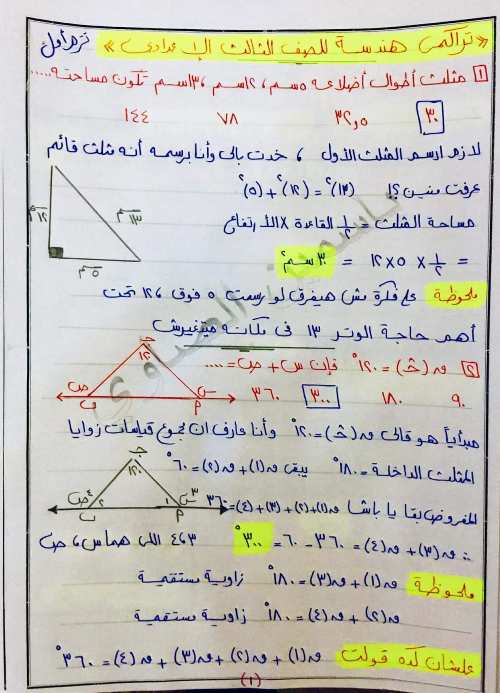 « تراكمى هندسة للصف الثالث الإعدادى » ترم أول
١ مثلث أطوال أضلاعه ٥سم ، ١٢سم ، ١٣سم تكون مساحته .....
٣٠ ٣٢٫٥ ٧٨ ١٤٤
لازم ارسم المثلث الأول ، خدت بالى وأنا برسمه أنه مثلث قائم
عرفت منين ؟! (١٣)² = (١٢)² + (٥)²
١٢سم ١٣سم ٥سم
مساحة المثلث = ½ القاعدة × الارتفاع
= ½ × ٥ × ١٢ = ٣٠سم²
ملحوظة على فكرة مش هيفرق لو رسمت ٥ فوق ، ١٢ تحت
أهم حاجة الوتر ١٣ فى مكانه ميتغيرش
٢ ق(ج) = ١٢٠° فإن س + ص = ....
ج ١٢٠ س ص ب ٩
٩٠ ١٨٠ ٣٠٠ ٣٦٠
مبدأياً هو قالى ق(ج) = ١٢٠° وأنا عارف ان مجموع قياسات زوايا
المثلث الداخلة = ١٨٠° يبقى ق(١) + ق(٢) = ٦٠°
ج ١٢٠ س ٣ ١ ٢ ٤ ص ب ٩
المفروض بقا يا باشا ق(١) + ق(٢) + ق(٣) + ق(٤) = ٣٦٠
∴ ق(٣) + ق(٤) = ٣٦٠ - ٦٠ = ٣٠٠° ٣ ، ٤ اللى هما س ، ص
ملحوظة ق(١) + ق(٣) = ١٨٠° زاوية مستقيمة
ق(٢) + ق(٤) = ١٨٠° زاوية مستقيمة
علشان كده قولت ق(١) + ق(٢) + ق(٣) + ق(٤) = ٣٦٠°
(١)